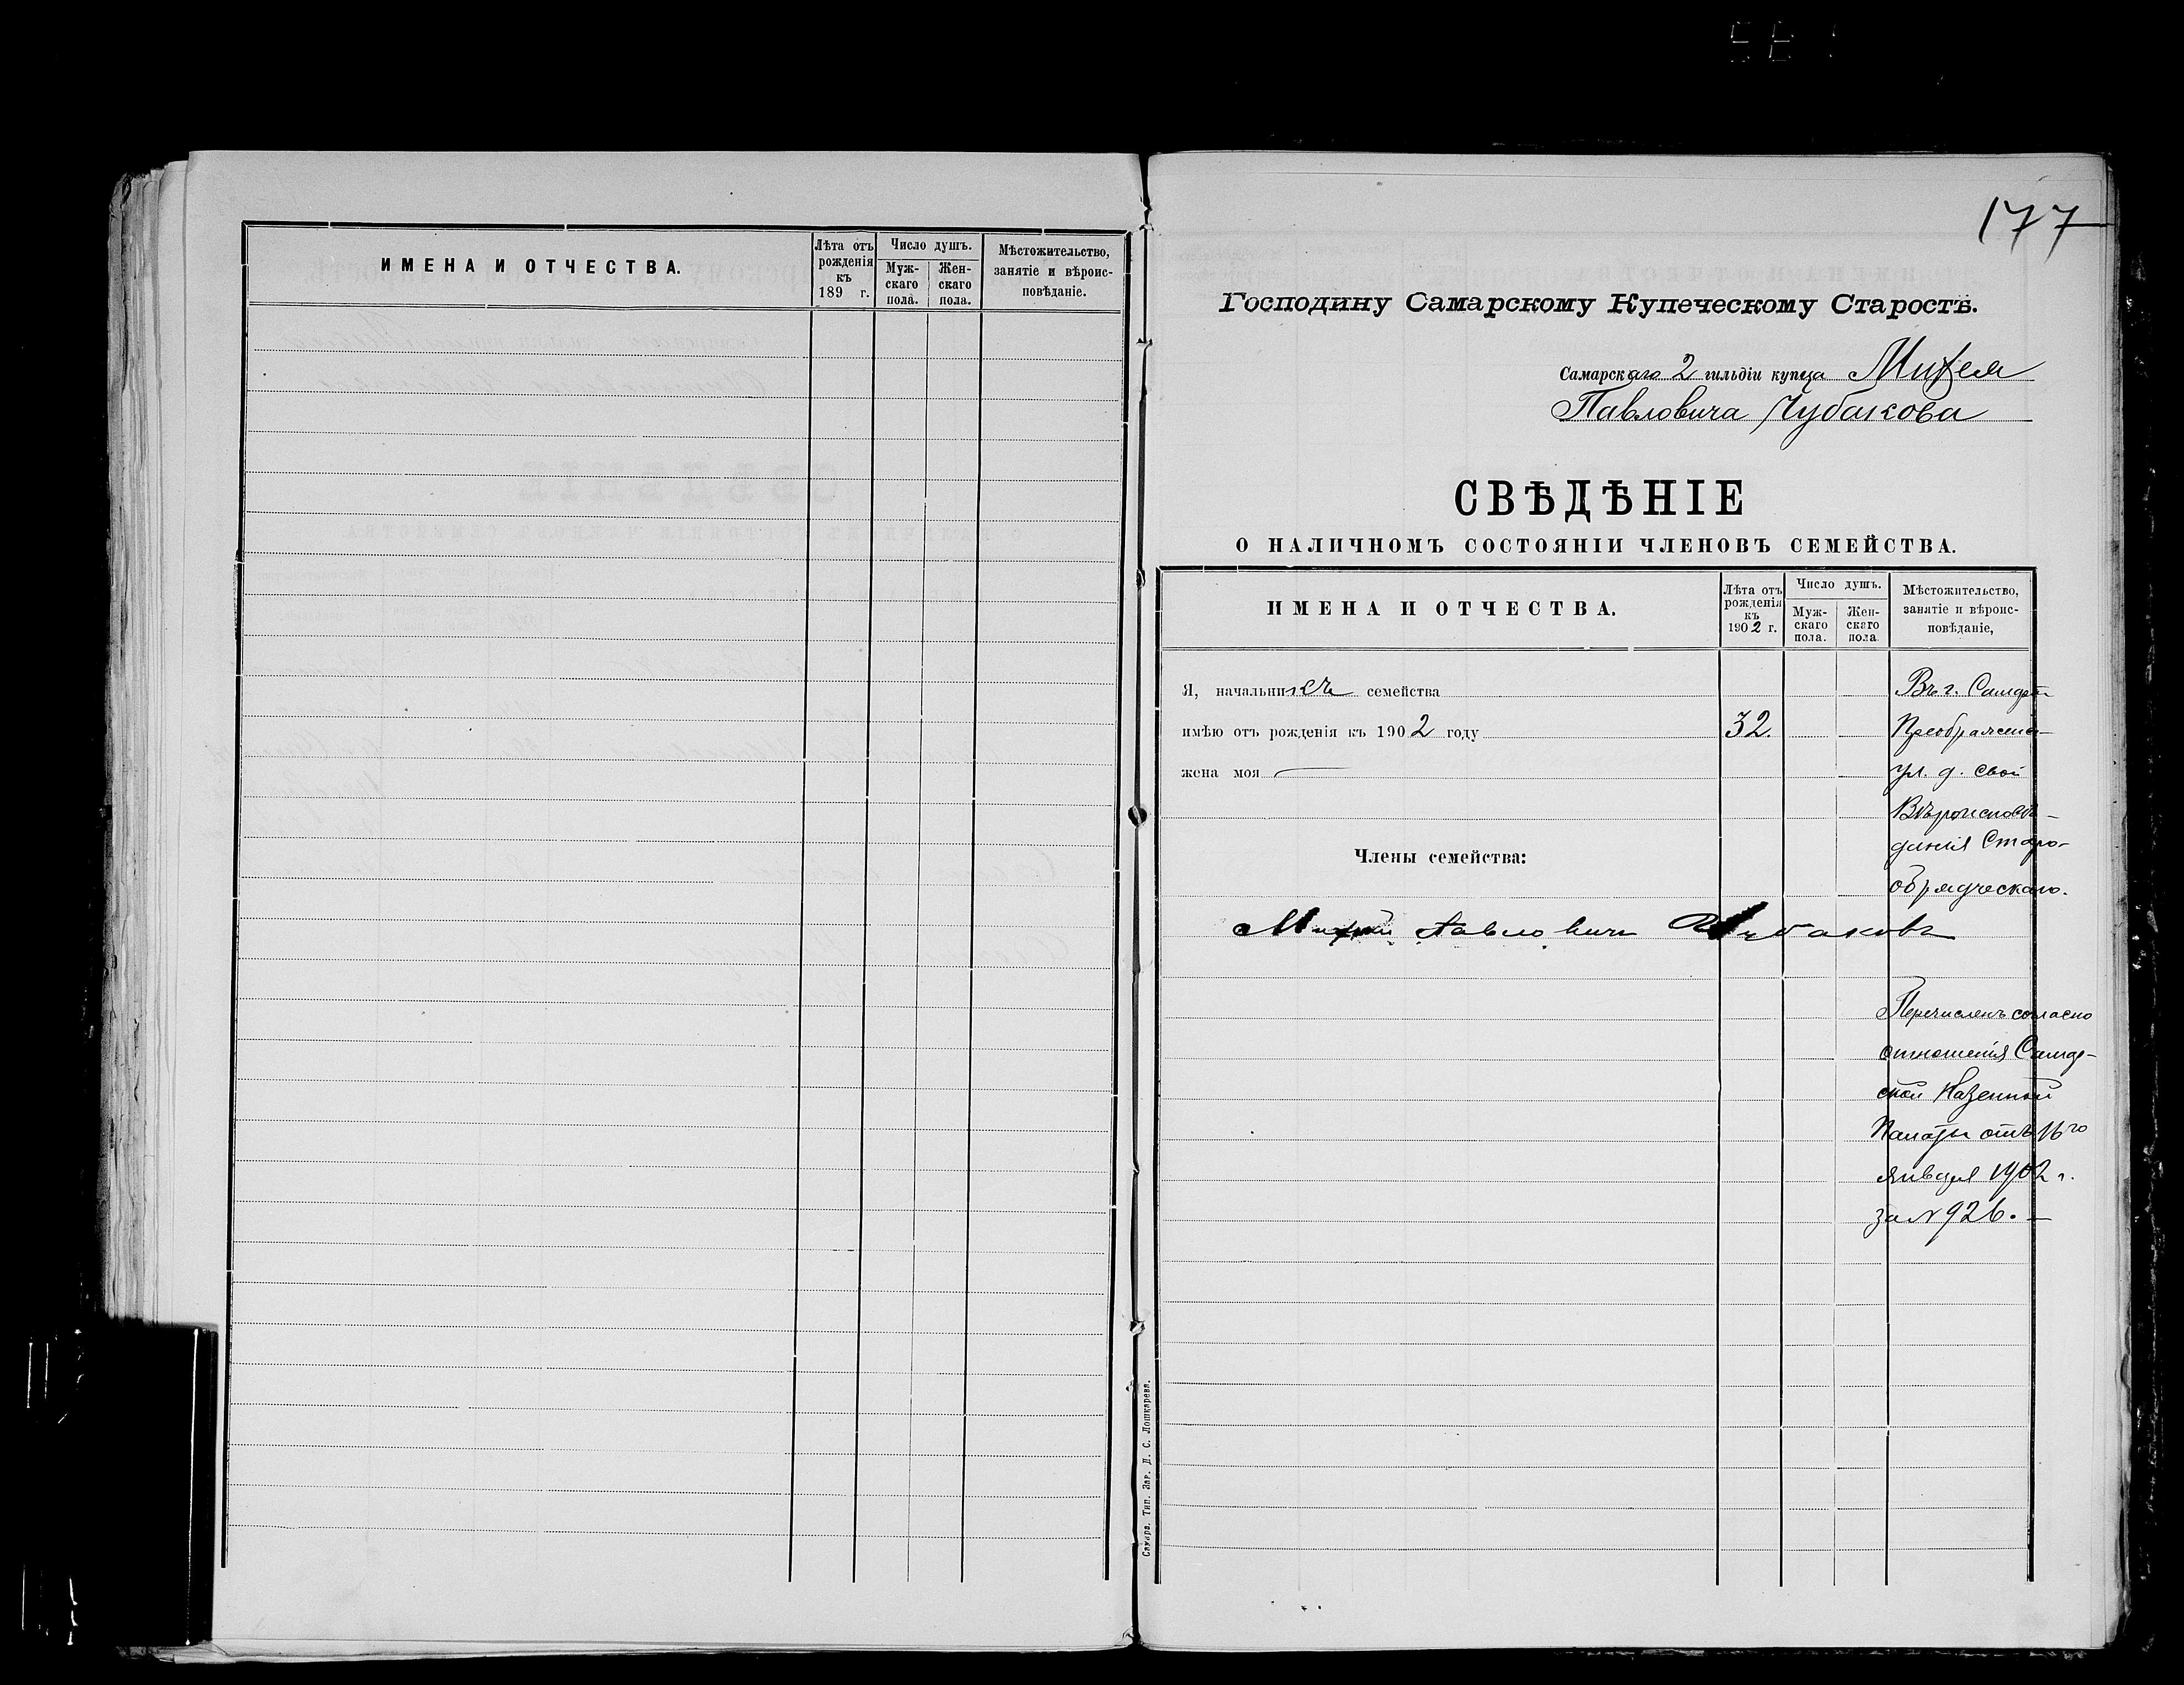 ИМЕНА И ОТЧЕСТВА.
Лѣта отъ рожденія къ 189 г.
Число душъ.
Мужскаго пола.
Женскаго пола.
Мѣстожительство, занятіе и вѣроисповѣданіе.
177
Господину Самарскому Купеческому Старостѣ.
Самарскаго 2 гильдіи купца Михея
Павловича Чубакова
СВѢДѢНІЕ
О НАЛИЧНОМЪ СОСТОЯНІИ ЧЛЕНОВЪ СЕМЕЙСТВА.
ИМЕНА И ОТЧЕСТВА.
Лѣта отъ рожденія къ 1902 г.
Число душъ.
Муж-
скаго
пола.
Жен-
скаго
пола
Мѣстожительство,
занятіе и вѣроис-
повѣданіе,
Я, начальникъ семейства
Въ г. Самарѣ
имѣю отъ рожденія къ 1902 году 32.
Преображенс-
жена моя —
ул. д. свой
Вѣроисповѣ-
Члены семейства:
данія Старо-
обрядческаго.
Михей Павловичъ Чубаковъ
Перечисленъ согласно
отношенія Самар-
ской Казенной
Палаты отъ 16го
января 1902 г.
за № 926. —
Самара. Тип. Зав. Д. С. Лошкарева.